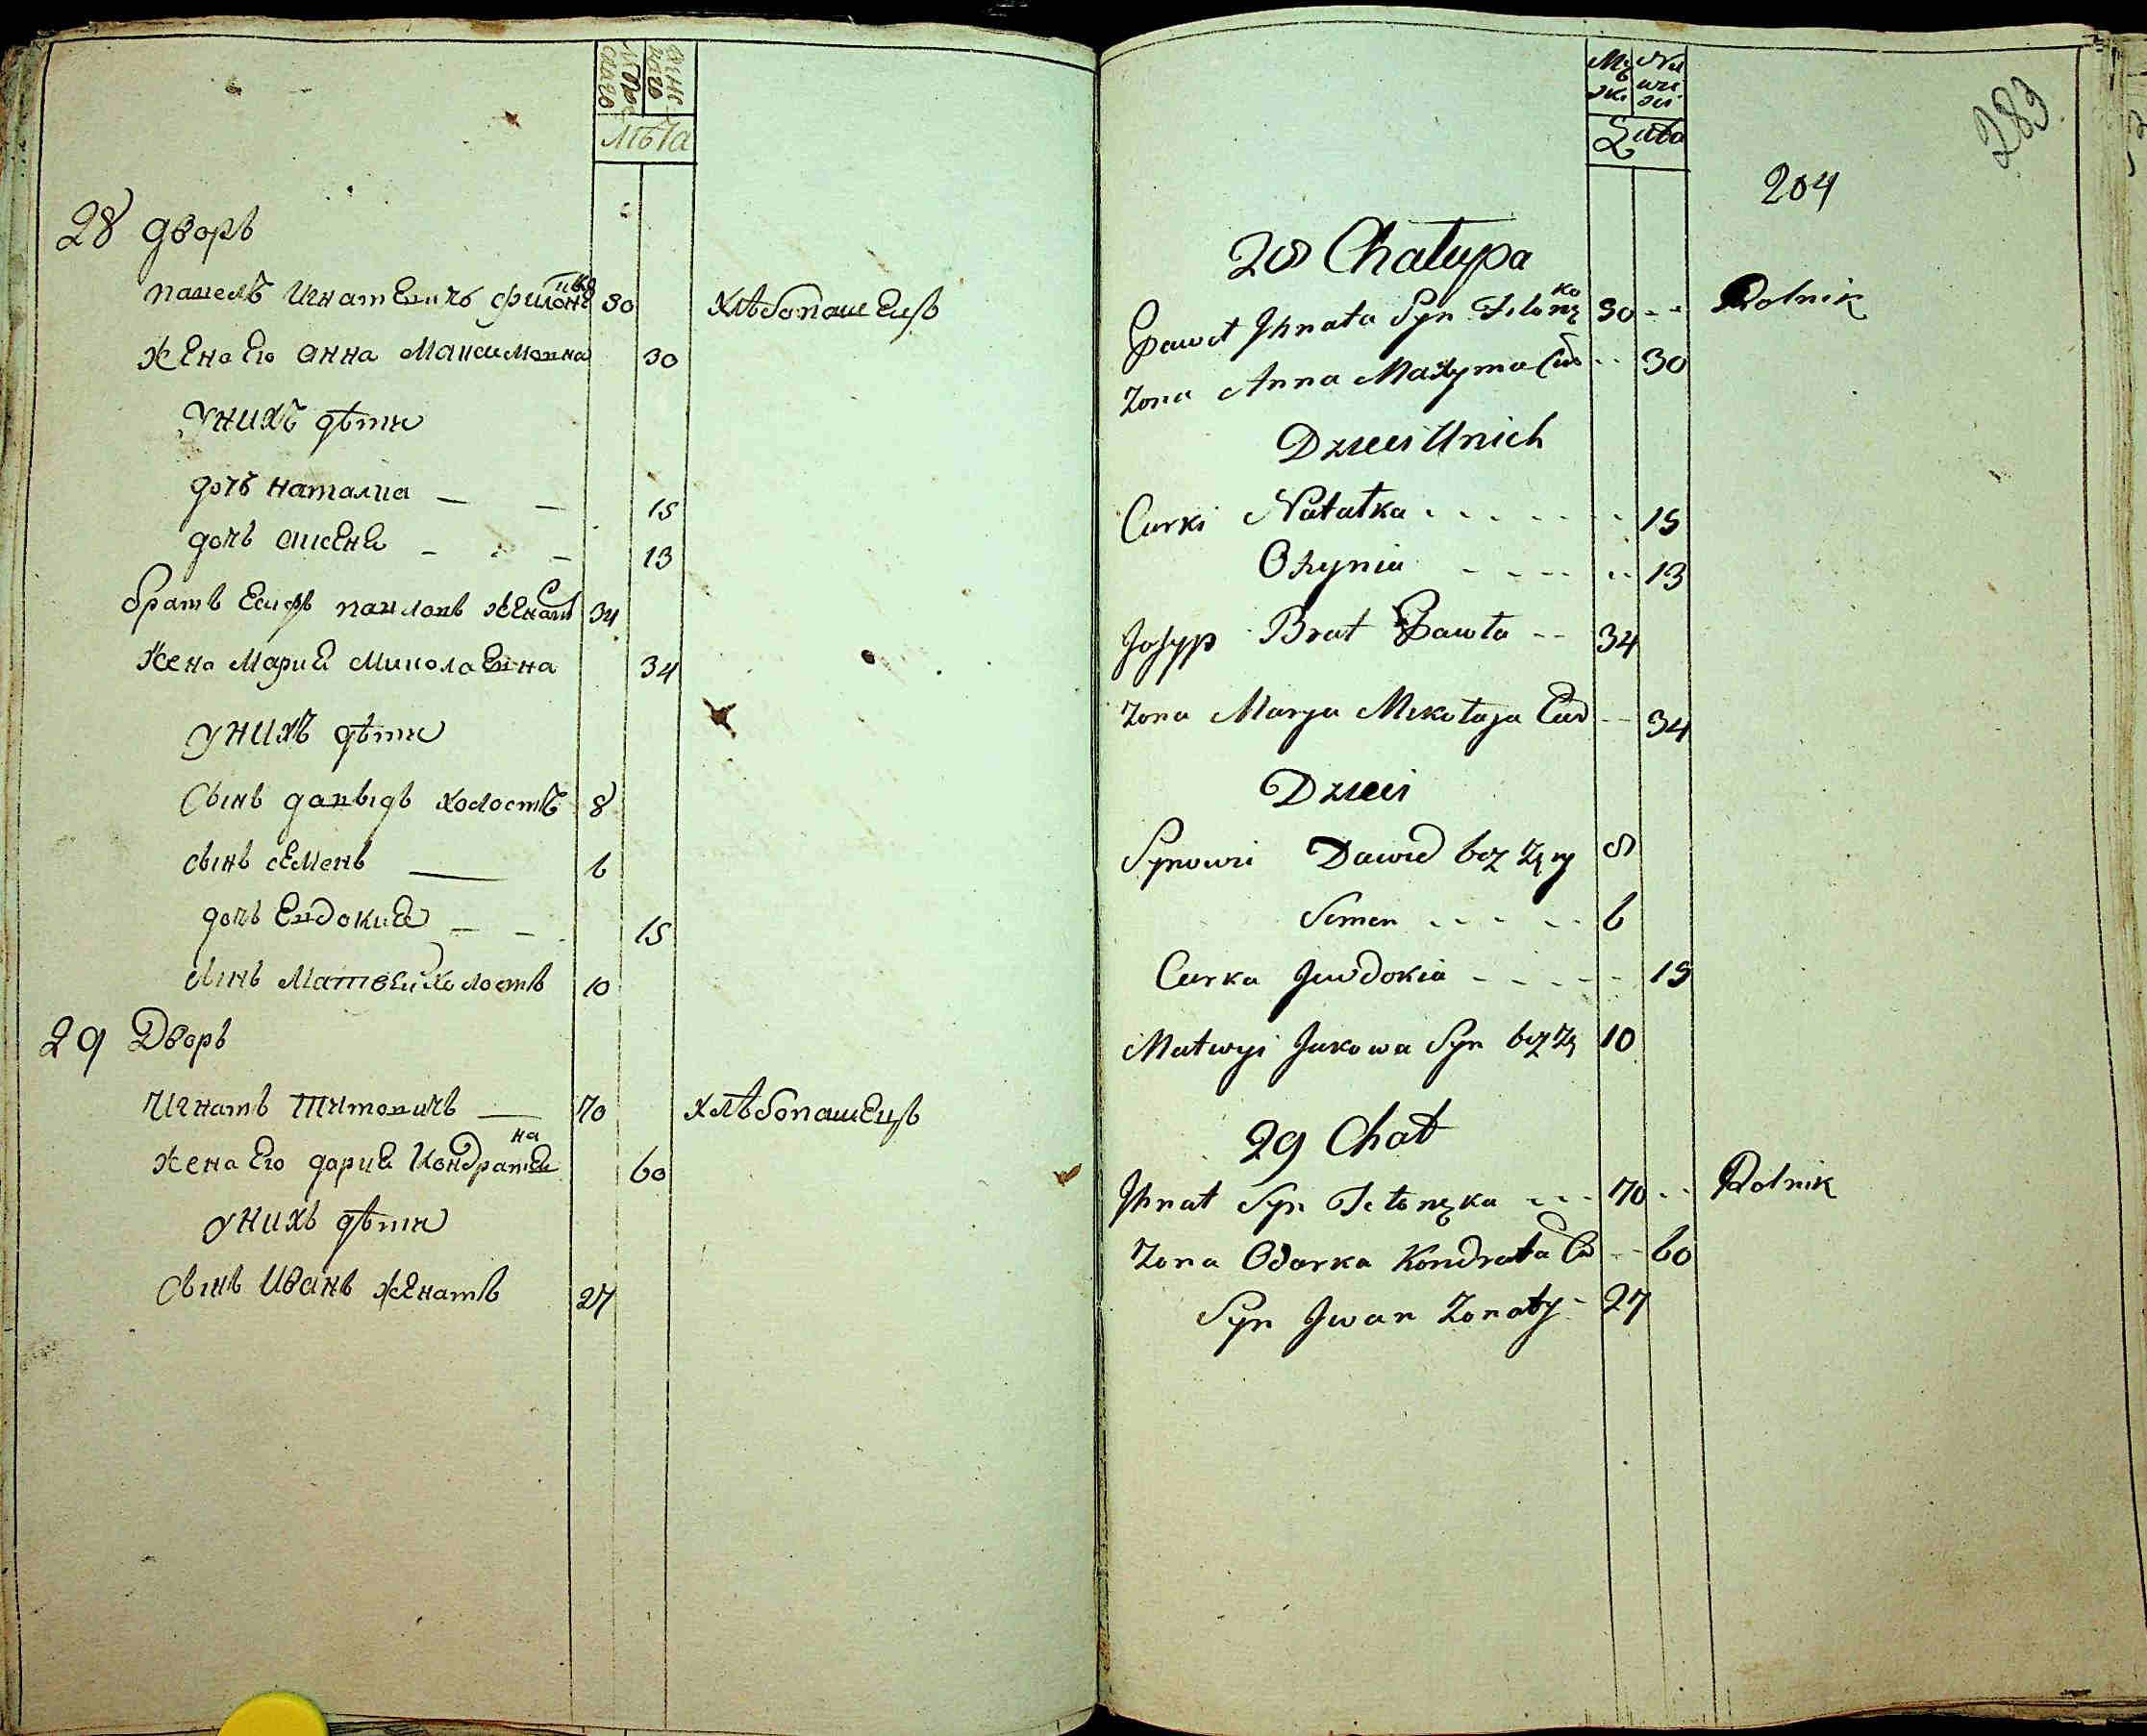 мужс
каго
женс
каго
лѣта
28 дворъ
павелъ игнатевичъ филоненко 30 хлѣбопашецъ
жена Его анна Максимовна 30
унихъ дѣти
дочь наталиа — — 15
дочь аксениа - - - 13
братъ Есифъ павловъ женатъ 34
жена Мариа Миколаевна 34
унихъ дѣти
сынъ давыдъ холостъ 8
сынъ семенъ — 6
дочь Евдокиа — — 15
сынъ Матвей холостъ 10
29 Дворъ
игнатъ титовичъ — 70 хлѣбопашецъ
жена Его дариа Кондратевна 60
унихъ дѣти
сынъ иванъ женатъ 27
283
Mę
zkie
Lata
204
28 Chałupa
Paweł Jhnata Syn Filonęko 30 - - Rolnik
Zona Anna Maxyma Cur - - 30
Dzieci Unich
Curki Natałka - - - - 15
Oxynia - - - - 13
Josyp Brat Pawła - - 34
Zona Marya Mikołaja Cur - - 34
Dzieci
Synowi Dawid bez Zęny 8
Semen - - - - 6
Curka Jewdokia - - - - 15
Matwyi Jakowa Syn bez Zę 10
29 Chat
Jhnat Syn Tetonęka - - - 70 - - Rolnik
Zona Odarka Kondrata Cu - - 60
Syn Jwan Zonaty - 27